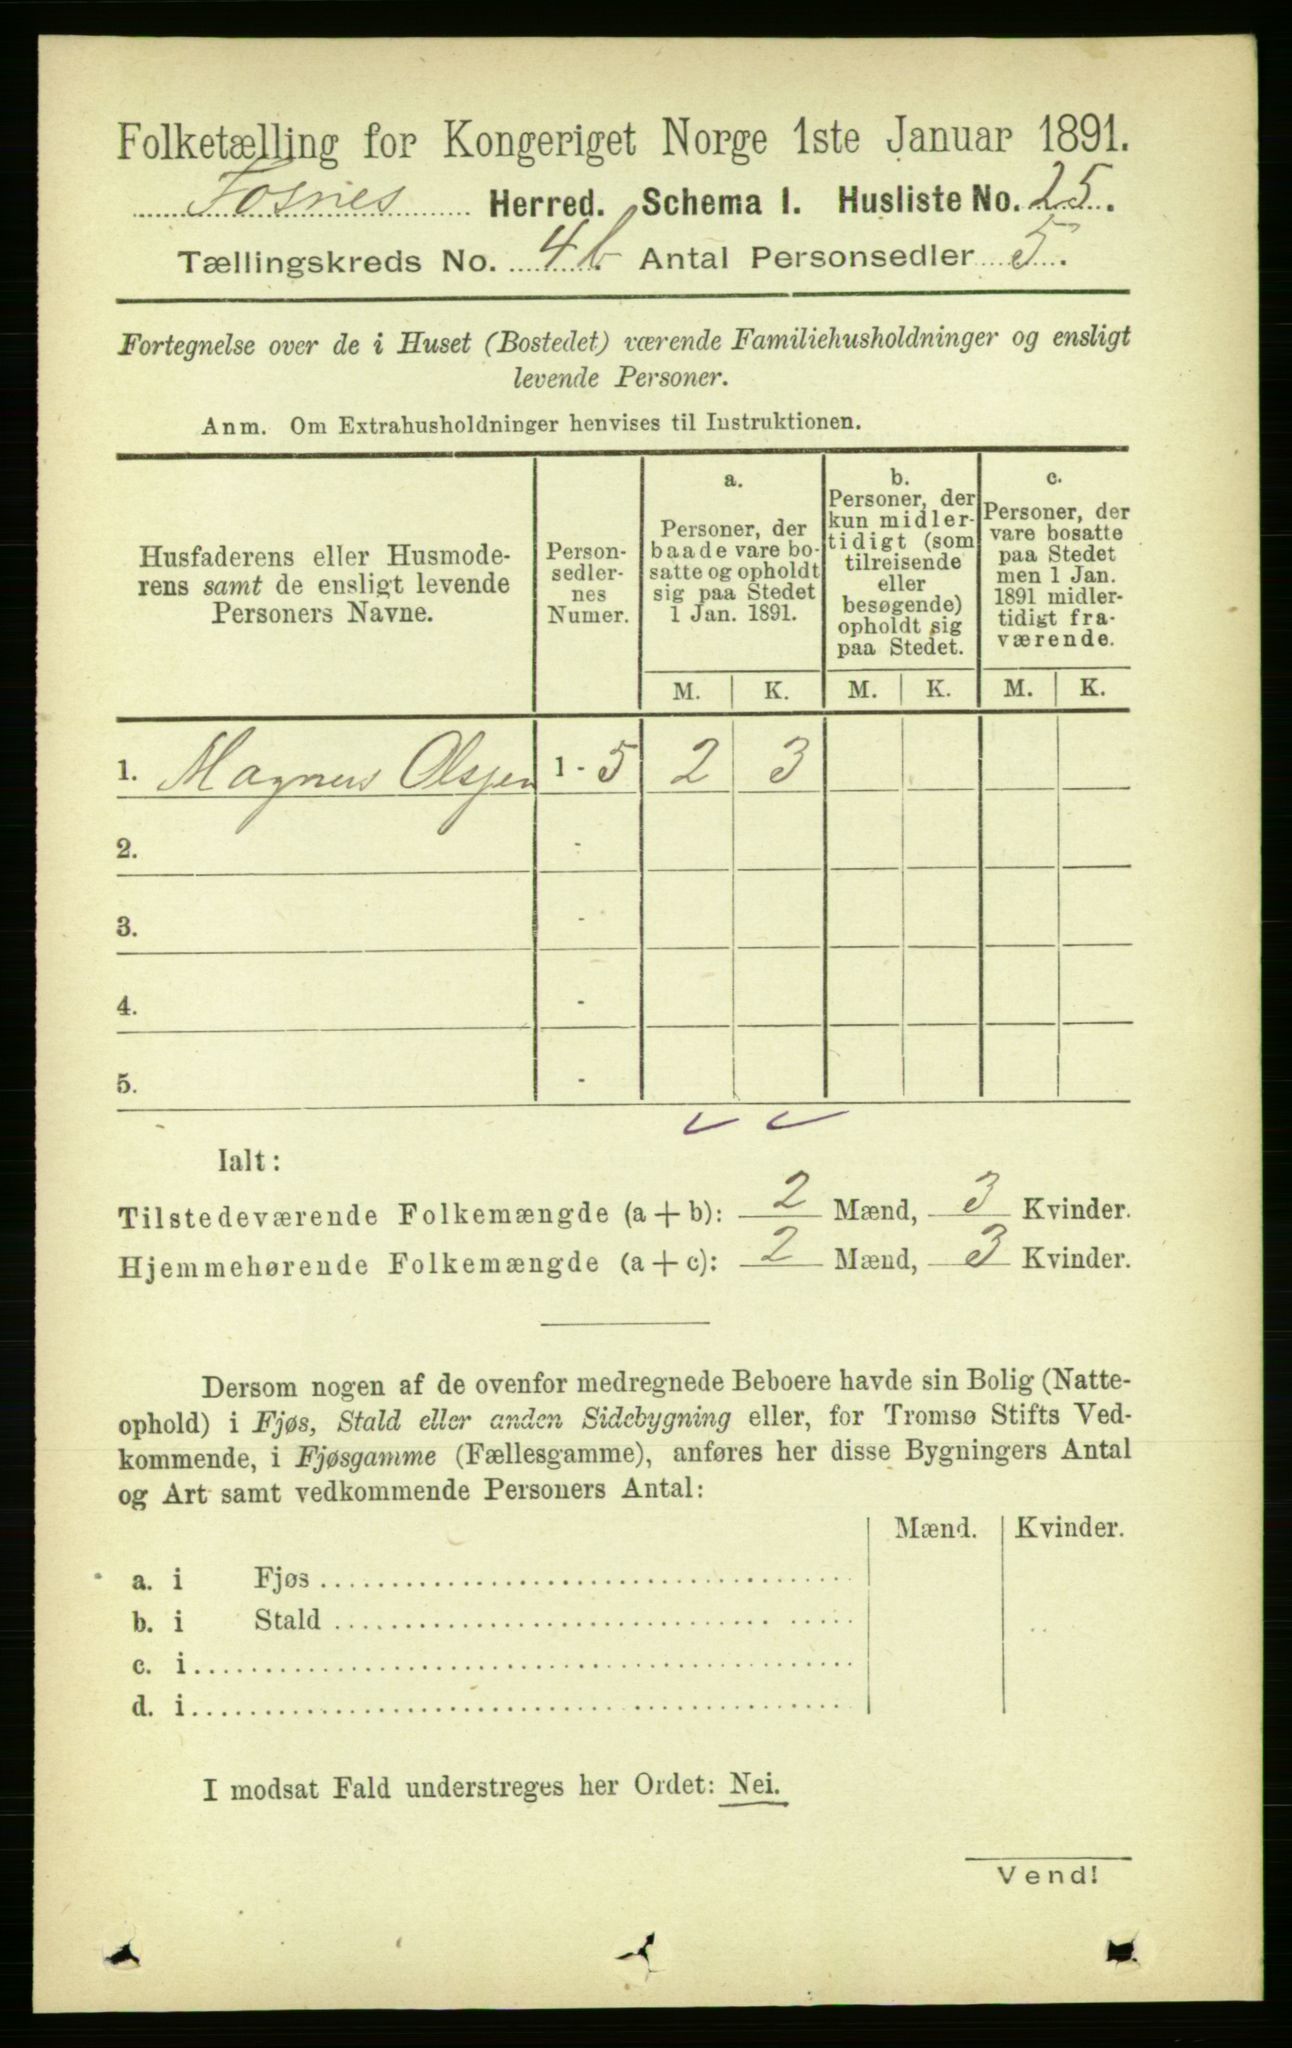 Folketælling for Kongeriget Norge 1ste Januar 1891.
Fosnes Herred. Schema 1. Husliste No. 25.
Tællingskreds No. 4b Antal Personsedler 5.
Fortegnelse over de i Huset (Bostedet) værende Familiehusholdninger og ensligt
levende Personer.
Anm. Om Extrahusholdninger henvises til Instruktionen.
Husfaderens eller Husmode-
rens samt de ensligt levende
Personers Navne.
Person-
sedler-
nes
Numer.
a.
Personer, der
baade vare bo-
satte og opholdt
sig paa Stedet
1 Jan. 1891.
b.
Personer, der
kun midler-
tidigt (som
tilreisende
eller
besøgende)
opholdt sig
paa Stedet.
c.
Personer, der
vare bosatte
paa Stedet
men 1 Jan.
1891 midler-
tidigt fra-
værende.
M. K. M. K. M. K.
1. Magnus Olsen 1 - 5 2 3
2. -
3. -
4. -
5. -
Ialt:
Tilstedeværende Folkemængde (a + b): 2 Mænd, 3 Kvinder.
Hjemmehørende Folkemængde (a + c): 2 Mænd, 3 Kvinder.
Dersom nogen af de ovenfor medregnede Beboere havde sin Bolig (Natte-
ophold) i Fjøs, Stald eller anden Sidebygning eller, for Tromsø Stifts Ved-
kommende, i Fjøsgamme (Fællesgamme), anføres her disse Bygningers Antal
og Art samt vedkommende Personers Antal:
Mænd. Kvinder.
a. i Fjøs
b. i Stald
c. i
d. i
I modsat Fald understreges her Ordet: Nei.
Vend!